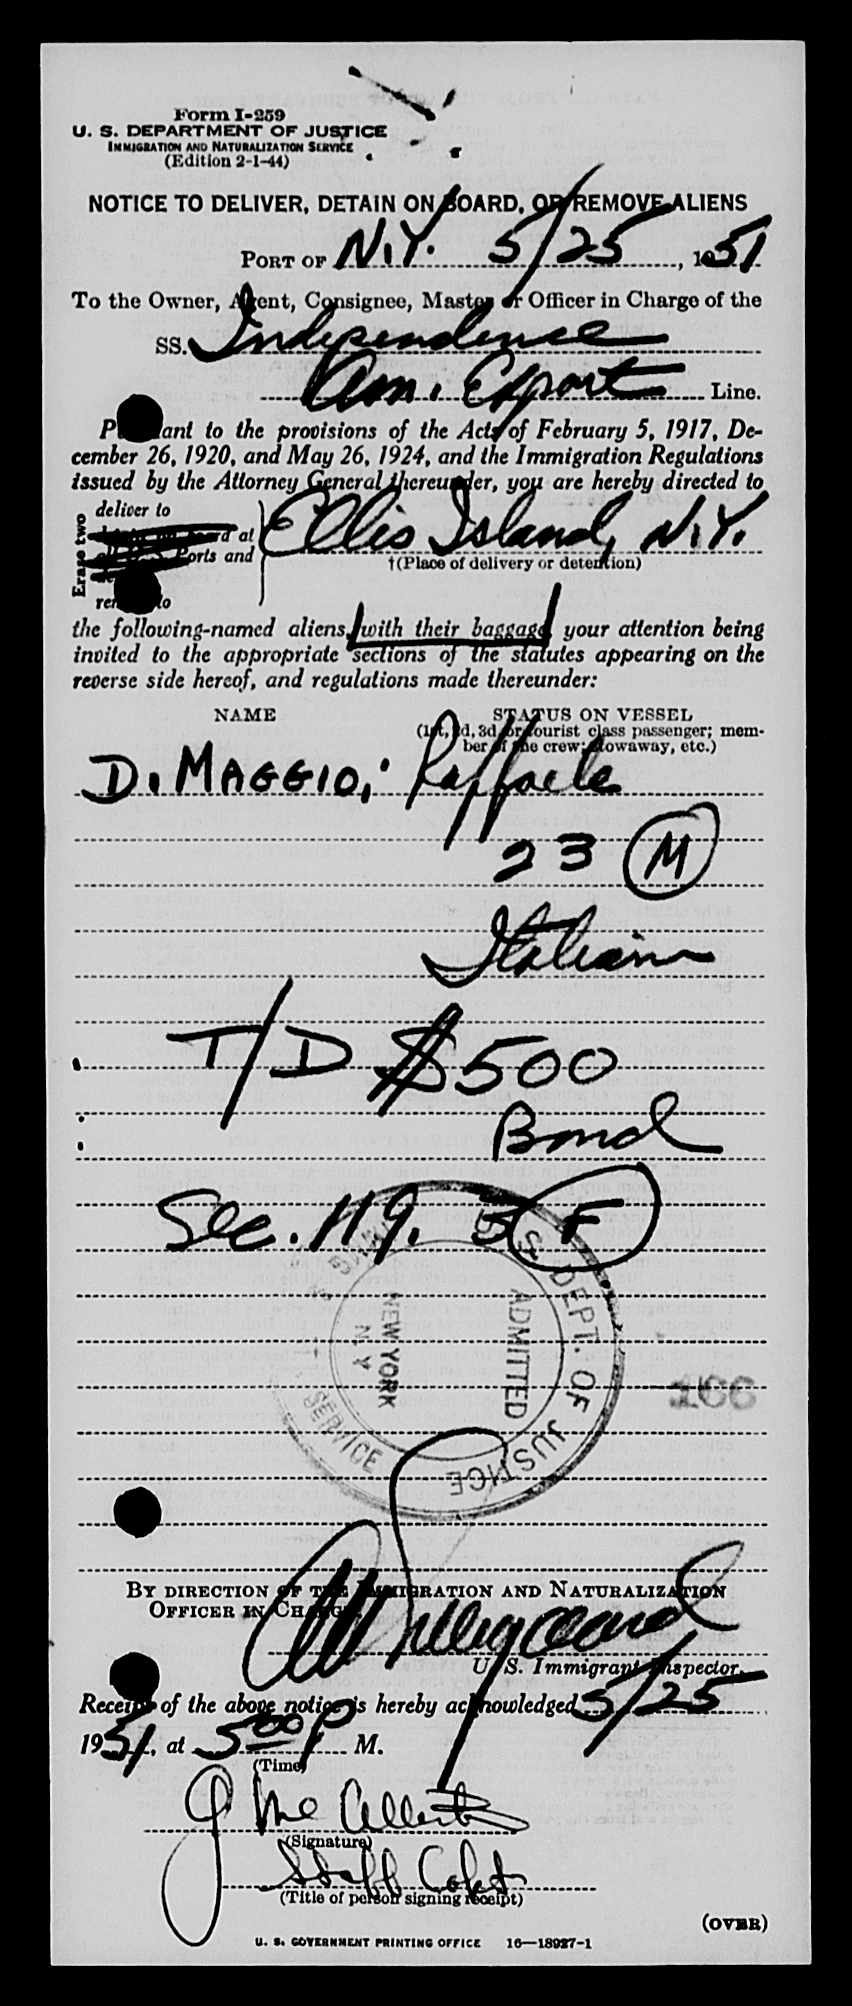 Form I-259
U. S. DEPARTMENT OF JUSTICE
IMMIGRATION AND NATURALIZATION SERVICE
(Edition 2-1-44)
NOTICE TO DELIVER, DETAIN ON BOARD, OR REMOVE ALIENS
PORT OF N.Y. 5/25, 1951
To the Owner, Agent, Consignee, Master or Officer in Charge of the
SS. Independence
Am. Export Line.
Pursuant to the provisions of the Acts of February 5, 1917, De-
cember 26, 1920, and May 26, 1924, and the Immigration Regulations
issued by the Attorney General thereunder, you are hereby directed to
Erase two
deliver to
d at
Ports and
remove to
Ellis Island, N.Y.
†(Place of delivery or detention)
the following-named aliens, with their baggage, your attention being
invited to the appropriate sections of the statutes appearing on the
reverse side hereof, and regulations made thereunder:
NAME STATUS ON VESSEL
(1st, 2d, 3d, or tourist class passenger; mem-
ber of the crew; stowaway, etc.)
DI MAGGIO, Raffaele
23 M
Italian
T/D $500
Bond
Sec. 119. 5 F
U. S. DEPT. OF JUSTICE
SERVICE
ADMITTED
NEW YORK
N. Y.
166
BY DIRECTION OF THE IMMIGRATION AND NATURALIZATION
OFFICER IN CHARGE.
U. S. Immigrant Inspector.
Receipt of the above notice is hereby acknowledged 5/25
1951, at 5 00 P M.
(Time)
J
(Signature)
Staff Capt
(Title of person signing receipt)
(OVER)
U. S. GOVERNMENT PRINTING OFFICE 16—18927-1